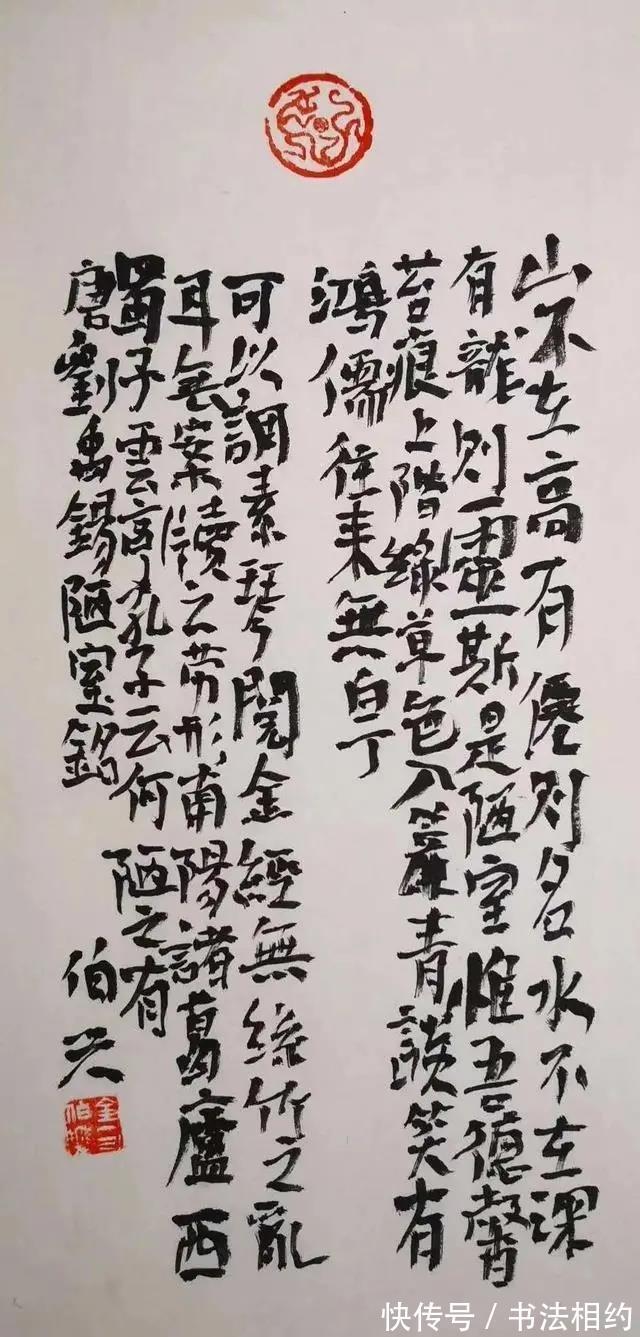 山不在高有僊则名水不在深
有龍则靈斯是陋室惟吾德馨
苔痕上階綠草色入簾青談笑有
鴻儒往来無白丁
可以調素琴閱金經無絲竹之亂
耳無案牘之劳形南陽諸葛廬西
蜀子雲亭孔子云何陋之有
唐劉禹錫陋室銘
伯兴
快传号/书法相约